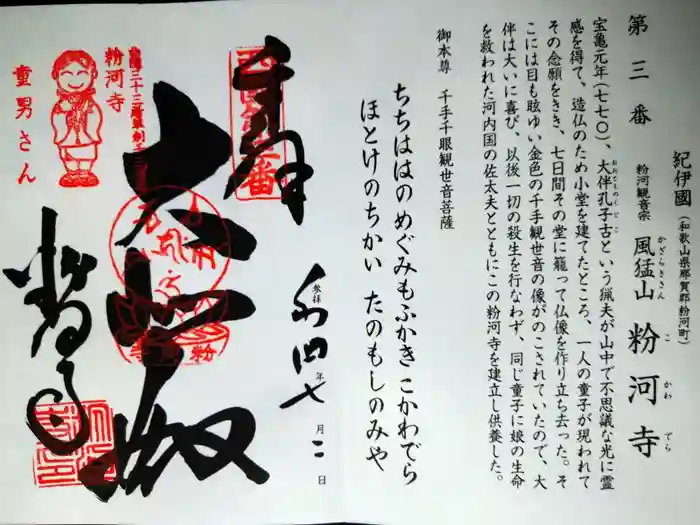 第三番
紀伊國(和歌山県那賀郡粉河町)
粉河観音宗
風猛山 粉河寺
かざらぎさん こ かわ でら
宝亀元年(七七〇)、大伴孔子古という猟夫が山中で不思議な光に霊
おおとものくじこ
感を得て、造仏のため小堂を建てたところ、一人の童子が現われて
その念願をきき、七日間その堂に籠って仏像を作り立ち去った。そ
こには目も眩ゆい金色の千手観世音の像がのこされていたので、大
伴は大いに喜び、以後一切の殺生を行なわず、同じ童子に娘の生命
を救われた河内国の佐太夫とともにこの粉河寺を建立し供養した。
御本尊 千手千眼観世音菩薩
ちちははのめぐみもふかきこかわでら
ほとけのちかい たのもしのみや
参拝 年 七 月 二 日
奉拝
大悲殿
粉河寺
粉河寺
童男さん